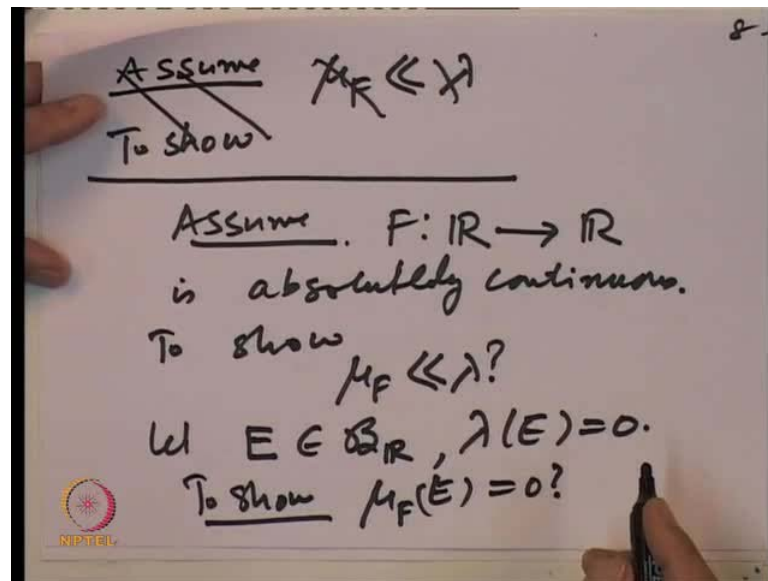 8-
Assume μ_F ≪ λ
To show
Assume. F: ℝ → ℝ
is absolutely continuous.
To show
μ_F ≪ λ?
let E ∈ 𝓑_ℝ, λ(E) = 0.
To show μ_F(E) = 0?
NPTEL